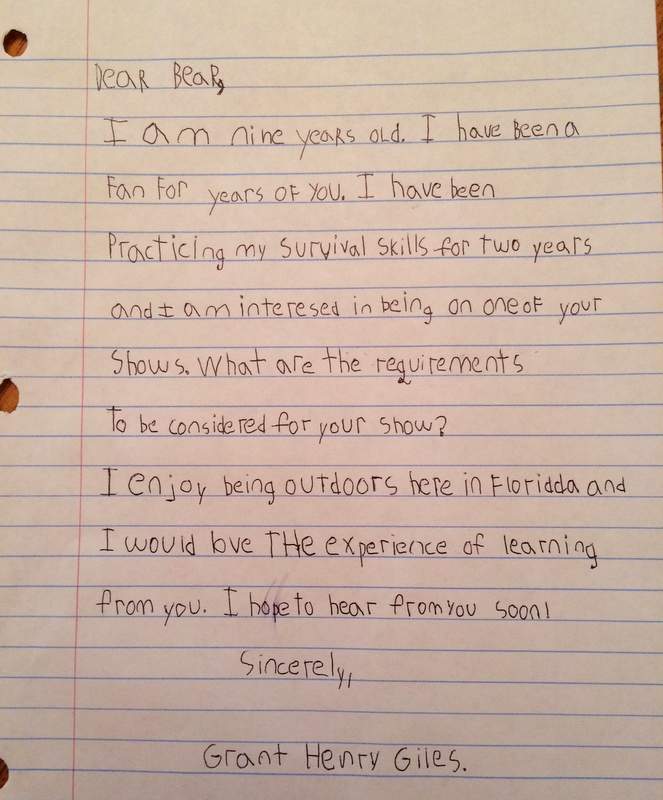 Dear Bear,
I am nine years old. I have been a
fan for years of you. I have been
Practicing my survival skills for two years
and I am interesed in being on one of your
Shows. What are the requirements
To be considered for your show?
I enjoy being outdoors here in Floridda and
I would love THe experience of learning
from you. I hope to hear from you soon!
Sincerely,
Grant Henry Giles.